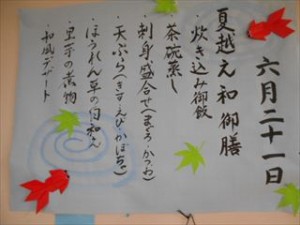 六月二十一日
夏越え和御膳
・炊き込み御飯
・茶碗蒸し
・刺身盛合せ(まぐろ・かつお)
・天ぷら(きす・えび・かぼちゃ)
・ほうれん草の白和え
・里芋の煮物
・和風デザート